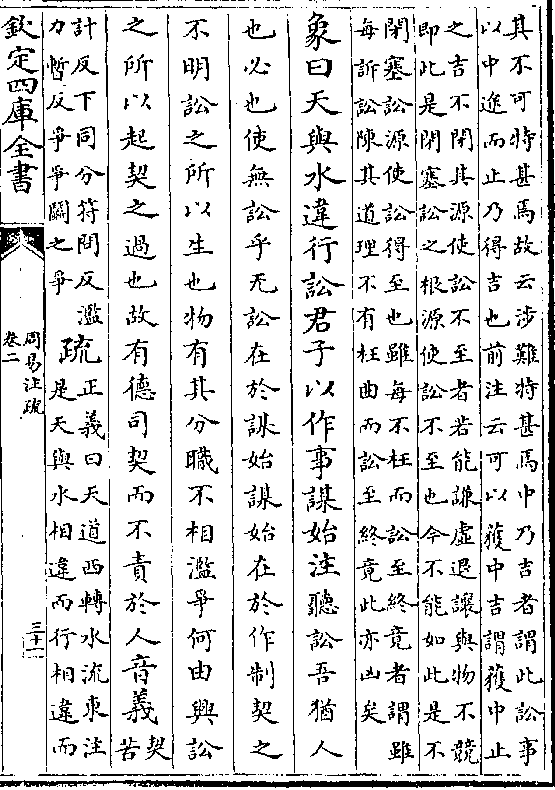 其不可特甚焉故云涉難特甚焉中乃吉者謂此訟事
以中途而止乃得吉也前注云可以獲中吉謂獲中止
之吉不閉其源使訟不至者若能謙虛退讓與物不競
即此是閉塞訟之根源使訟不至也今不能如此是不
閉塞訟源使訟得至也雖每不枉而訟至終竟者謂雖
每訴訟陳其道理不有枉曲而訟至終竟此亦凶矣
象曰天與水違行訟君子以作事謀始注聽訟吾猶人
也必也使無訟乎无訟在於謀始謀始在於作制契之
不明訟之所以生也物有其分職不相濫爭何由興訟
之所以起契之過也故有德司契而不責於人音義契苦
計反下同分符問反濫
力暫反爭爭鬭之爭
疏正義曰天道西轉水流東注
是天與水相違而行相違而
欽定四庫全書
周易注疏
卷二
三十一